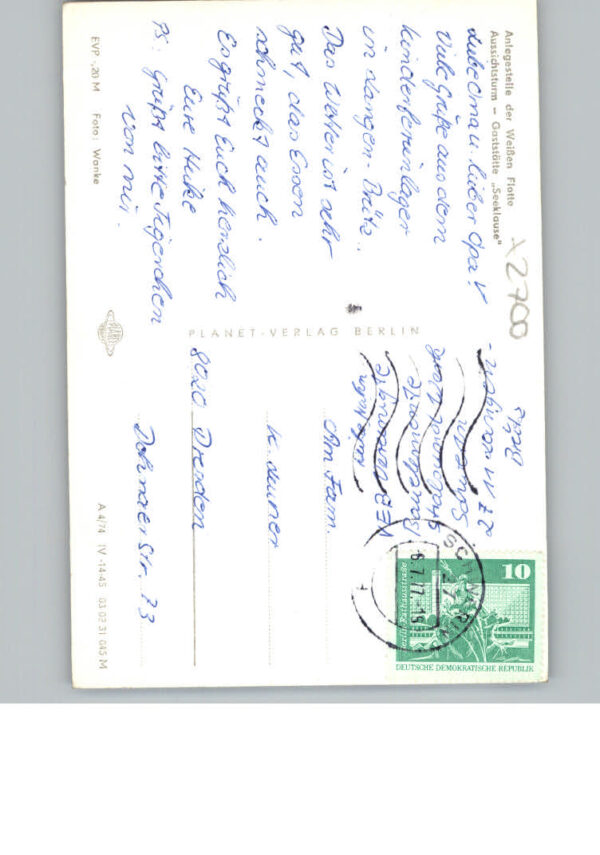 Anlegestelle der Weißen Flotte
Aussichtsturm – Gaststätte „Seeklause"
Liebe Oma u. lieber Opa!
Viele Grüße aus dem
Kinderferienlager
in Langen Brütz.
Das Wetter ist sehr
gut, das Essen
schmeckt auch.
Es grüßt Euch herzlich
Eure Heike
PS: Grüßt bitte
von mir.
EVP -,20 M Foto: Wanke
x2700
PLANET-VERLAG BERLIN
An Fam.
8020 Dresden
Dohnaer Str. 73
10
Berlin, Rathausstraße
DEUTSCHE DEMOKRATISCHE REPUBLIK
6.7.77-19
A 4/74 IV-14-45 03 02 31 045 M